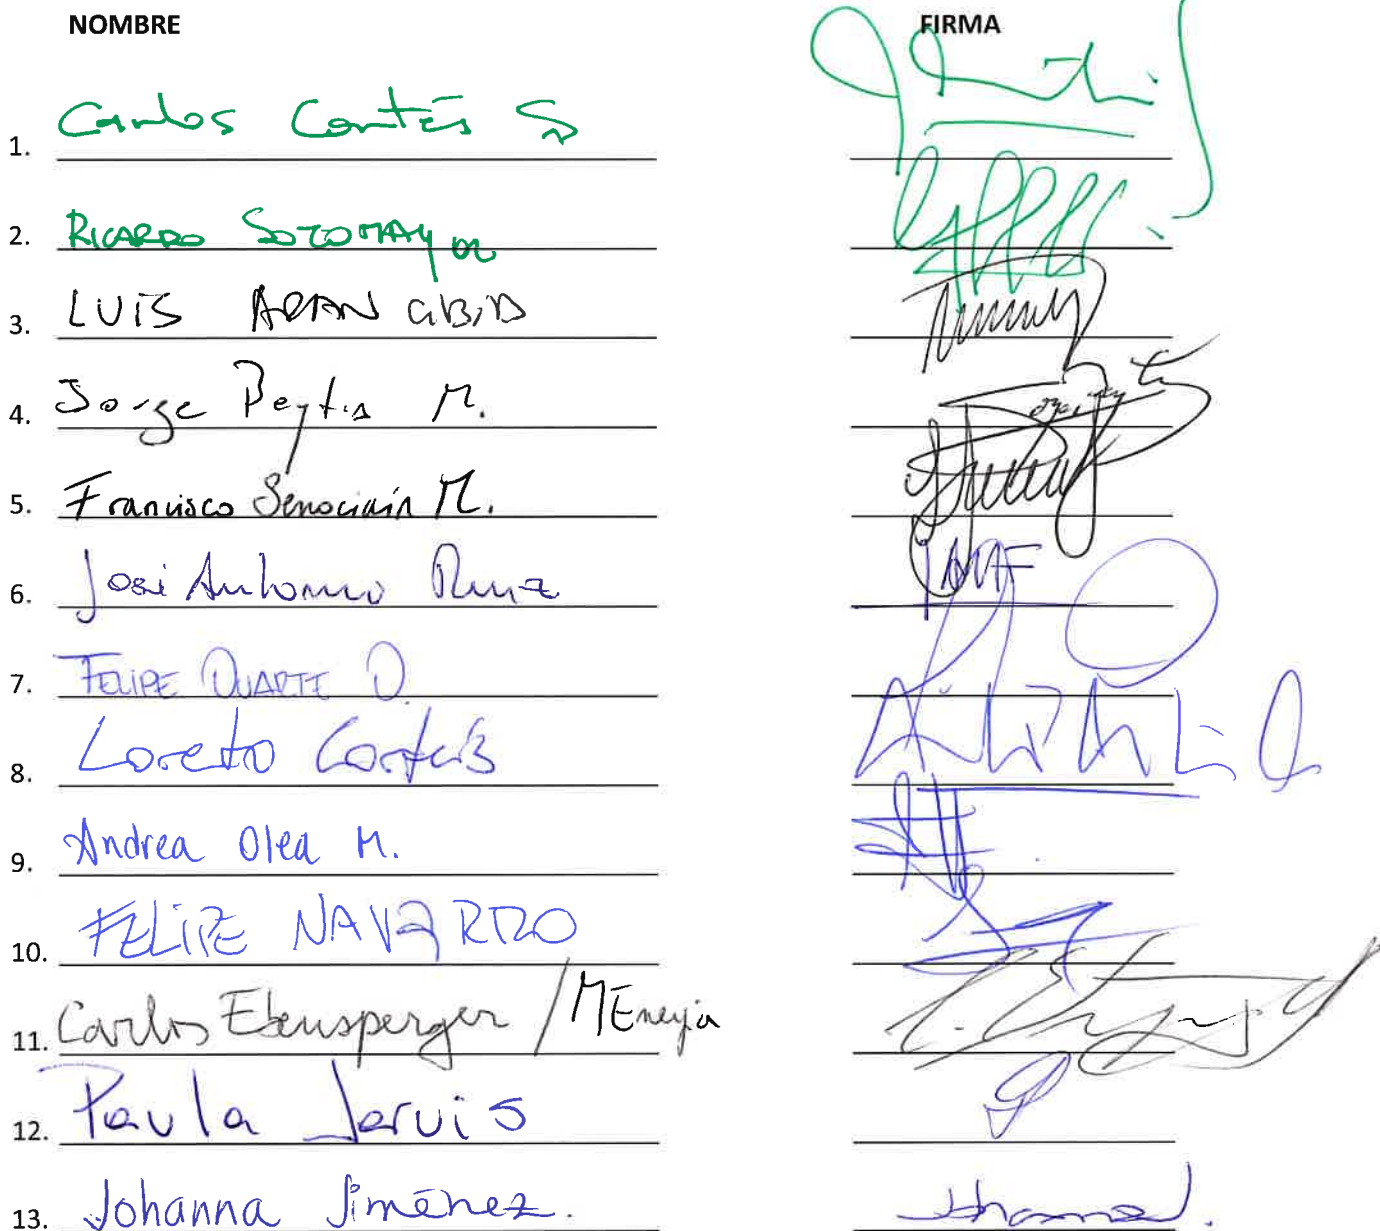 NOMBRE FIRMA
1. Carlos Cortés S
2. RICARDO SOTOMAYOR
3. LUIS ARANGIBIA
4. Jorge Peytin M.
5. Francisco Senociain M.
6. José Antonio Ruiz
7. FELIPE DUARTE O.
8. Loreto Cortés
9. Andrea Olea M.
10. FELIPE NAVARRO
11. Carlos Ebensperger / MEnergia
12. Paula Jervis
13. Johanna Jiménez.